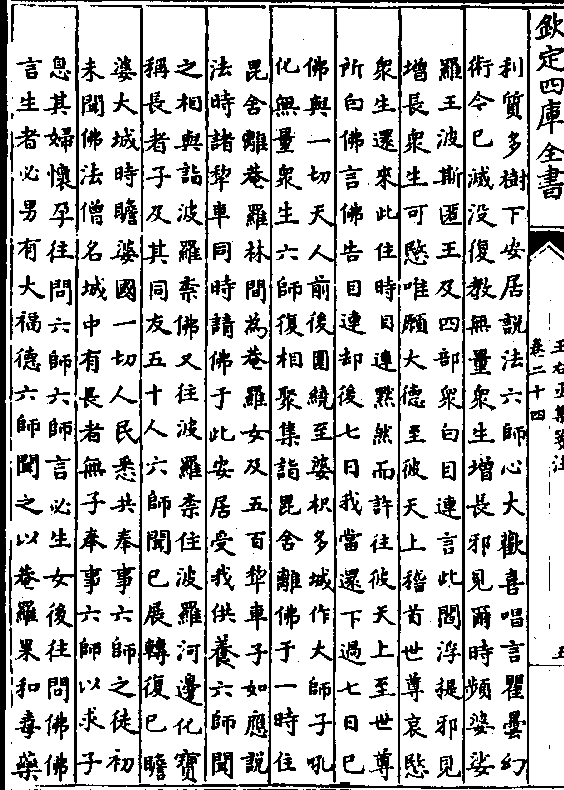 欽定四庫全書
王右丞集箋注
卷二十四
五
利質多樹下安居説法六師心大歡喜唱言瞿曇幻
術令已滅没復教無量衆生增長邪見爾時頻婆娑
羅王波斯匿王及四部衆白目連言此閻浮提邪見
增長衆生可愍唯願大德至彼天上稽首世尊哀愍
衆生還來此住時目連黙然而許往彼天上至世尊
所白佛言佛告目連却後七日我當還下過七日已
佛與一切天人前後圍繞至婆枳多城作大師子吼
化無量衆生六師復相聚集詣毘舍離佛于一時住
毘舍離菴羅林間為菴羅女及五百犂車子如應説
法時諸犂車同時請佛于此安居受我供養六師聞
之相與詣波羅柰佛又往波羅柰住波羅河邊化寶
稱長者子及其同友五十人六師聞已展轉復已瞻
婆大城時瞻婆國一切人民悉共奉事六師之徒初
未聞佛法僧名城中有長者無子奉事六師以求子
息其婦懷孕往問六師六師言必生女後往問佛佛
言生者必男有大福德六師聞之以菴羅果和毒藥